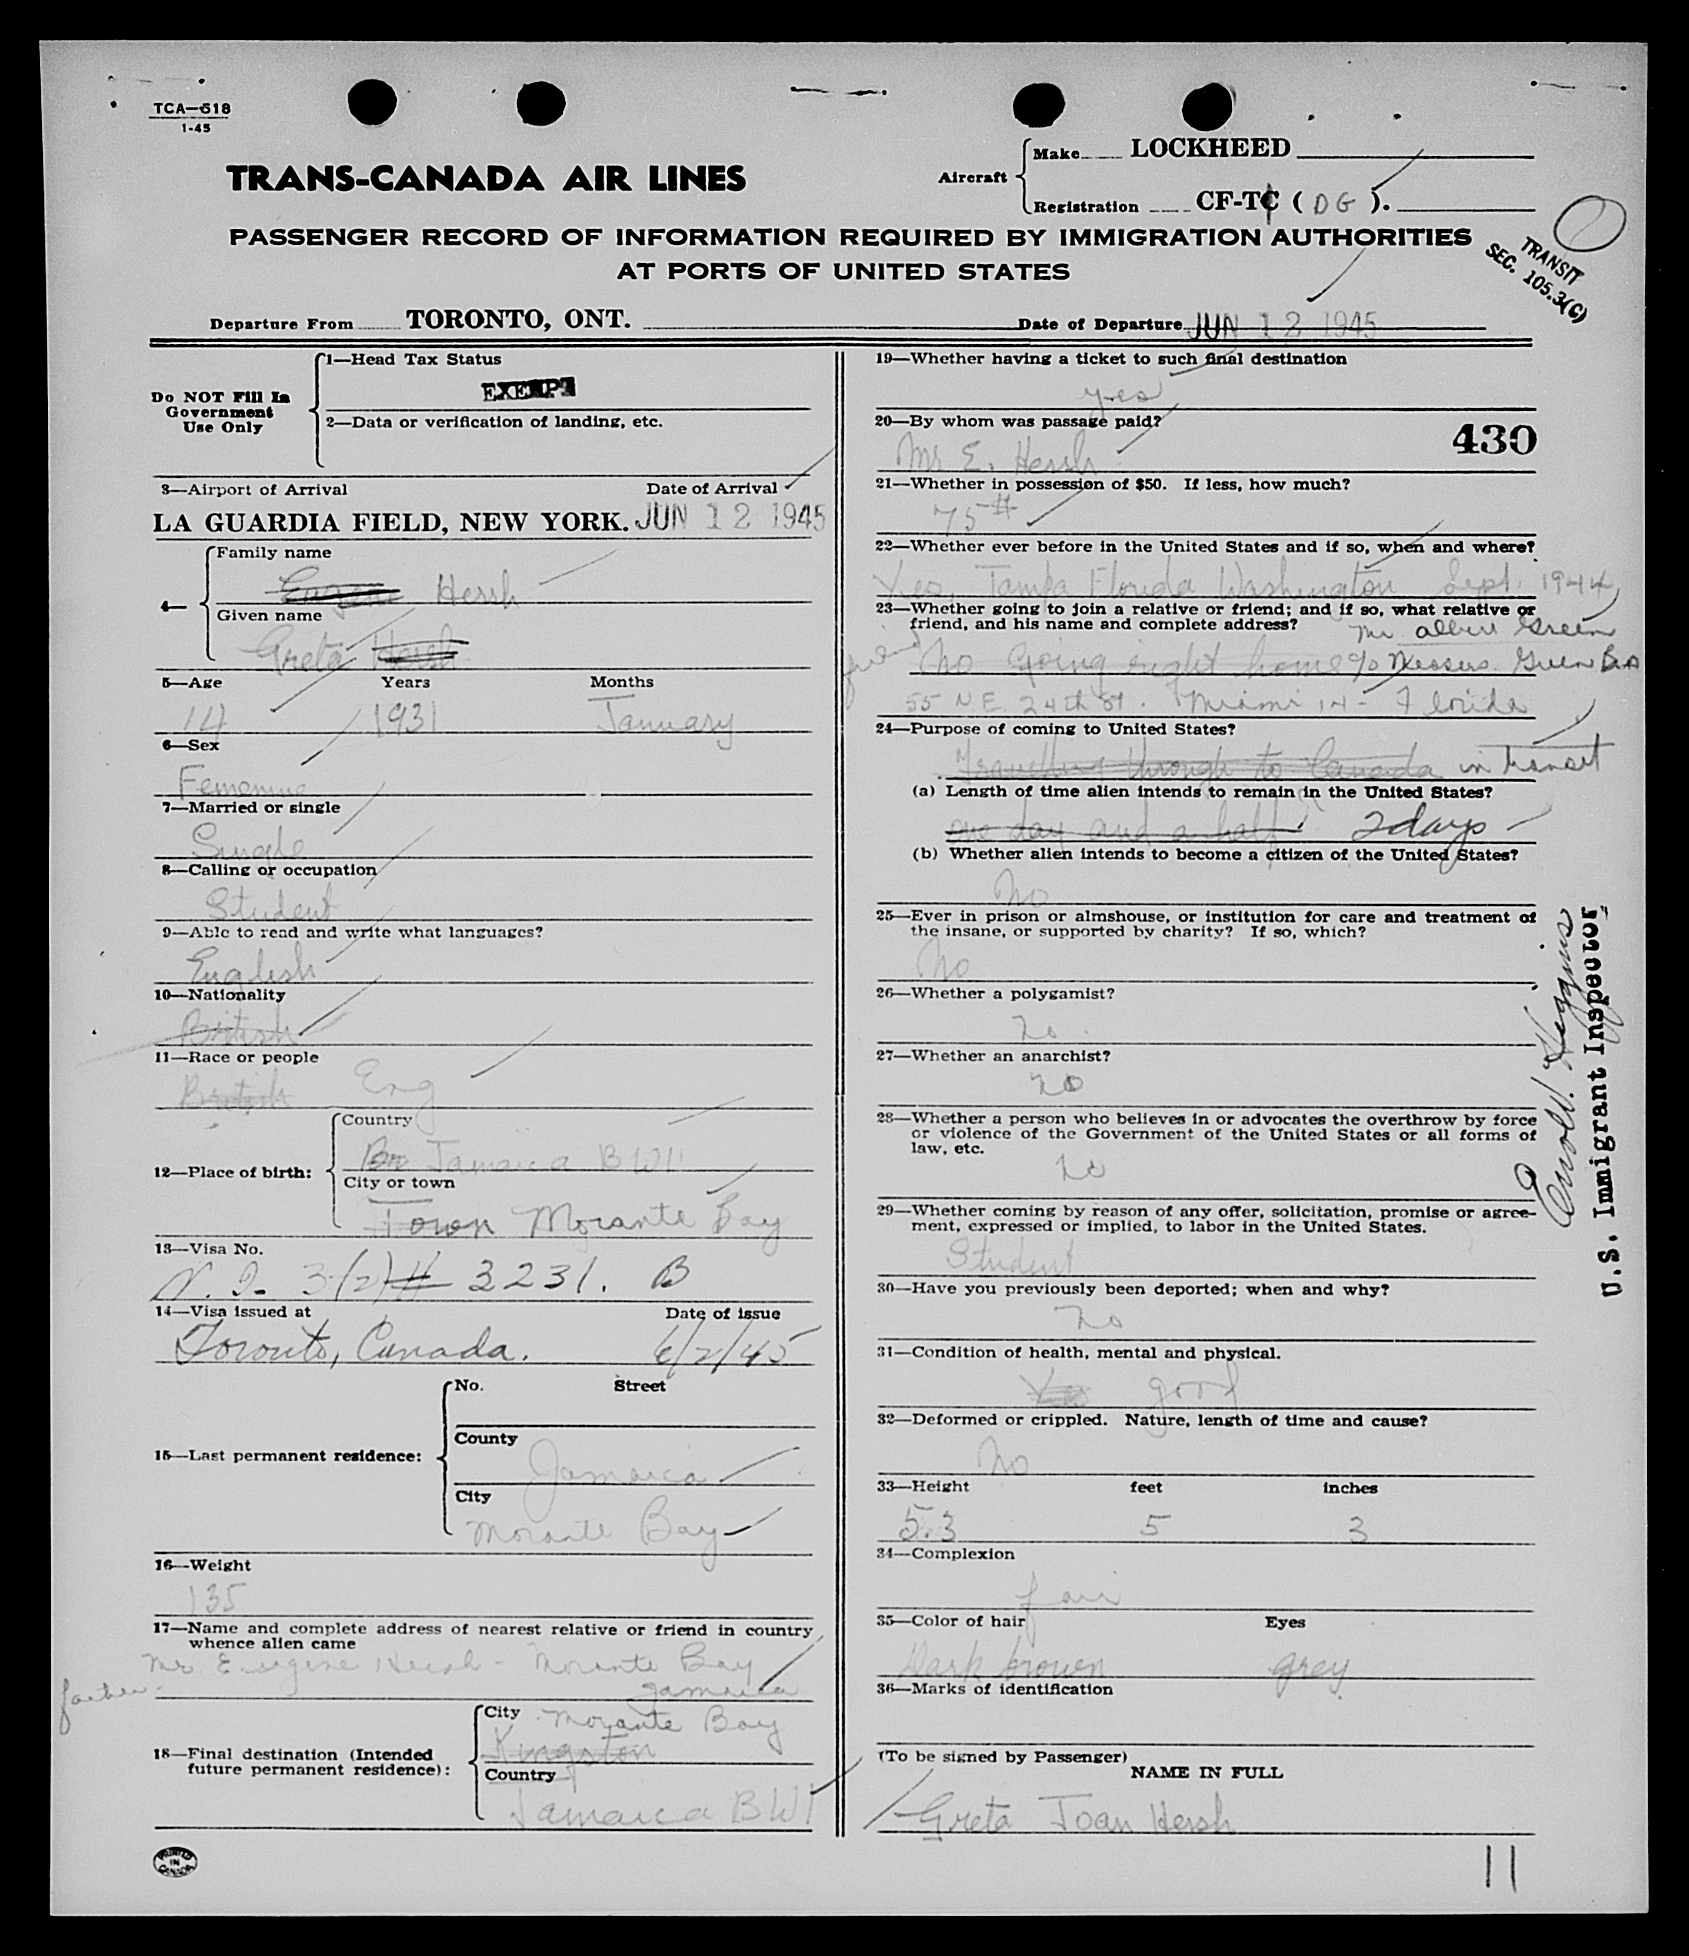 TCA—518
1-45
TRANS-CANADA AIR LINES
Aircraft
Make LOCKHEED
Registration CF-TC ( DG ).
PASSENGER RECORD OF INFORMATION REQUIRED BY IMMIGRATION AUTHORITIES
AT PORTS OF UNITED STATES
TRANSIT
SEC. 105.3(C)
Departure From TORONTO, ONT. Date of Departure JUN 12 1945
Do NOT Fill In
Government
Use Only
1—Head Tax Status
EXEMPT
2—Data or verification of landing, etc.
3—Airport of Arrival Date of Arrival
LA GUARDIA FIELD, NEW YORK. JUN 12 1945
4—
Family name
Eugene Hersh
Given name
Greta Hersh
5—Age Years Months
14 1931 January
6—Sex
Femenine
7—Married or single
Single
8—Calling or occupation
Student
9—Able to read and write what languages?
English
10—Nationality
British
11—Race or people
British Eng
12—Place of birth:
Country
Br Jamaica BWI
City or town
Town Morante Bay
13—Visa No.
N. I. 3(2) # 3231. B
14—Visa issued at Date of issue
Toronto, Canada. 6/2/45
15—Last permanent residence:
No. Street
County
Jamaica
City
Morante Bay
16—Weight
135
17—Name and complete address of nearest relative or friend in country
whence alien came
Mr Eugene Hersh - Morante Bay
father - Jamaica
18—Final destination (Intended
future permanent residence):
City Morante Bay
Kingston
Country
Jamaica BWI
PRINTED
IN
CANADA
19—Whether having a ticket to such final destination
yes
20—By whom was passage paid?
430
Mr E. Hersh
21—Whether in possession of $50. If less, how much?
75#
22—Whether ever before in the United States and if so, when and where?
Yes, Tampa Florida Washington Sept. 1944
23—Whether going to join a relative or friend; and if so, what relative or
friend, and his name and complete address?
Mr Albert Green
friend No Going right home c/o Messers. Green Bros
55 N.E. 24th St. Miami 14 - Florida
24—Purpose of coming to United States?
Travelling through to Canada in transit
(a) Length of time alien intends to remain in the United States?
one day and a half 2 days
(b) Whether alien intends to become a citizen of the United States?
No
25—Ever in prison or almshouse, or institution for care and treatment of
the insane, or supported by charity? If so, which?
No
26—Whether a polygamist?
no
27—Whether an anarchist?
no
28—Whether a person who believes in or advocates the overthrow by force
or violence of the Government of the United States or all forms of
law, etc.
no
29—Whether coming by reason of any offer, solicitation, promise or agree-
ment, expressed or implied, to labor in the United States.
Student
30—Have you previously been deported; when and why?
no
31—Condition of health, mental and physical.
good
32—Deformed or crippled. Nature, length of time and cause?
No
33—Height feet inches
5.3 5 3
34—Complexion
fair
35—Color of hair Eyes
Dark brown grey
36—Marks of identification
(To be signed by Passenger)
NAME IN FULL
Greta Joan Hersh
11
Higgins
U.S. Immigrant Inspector